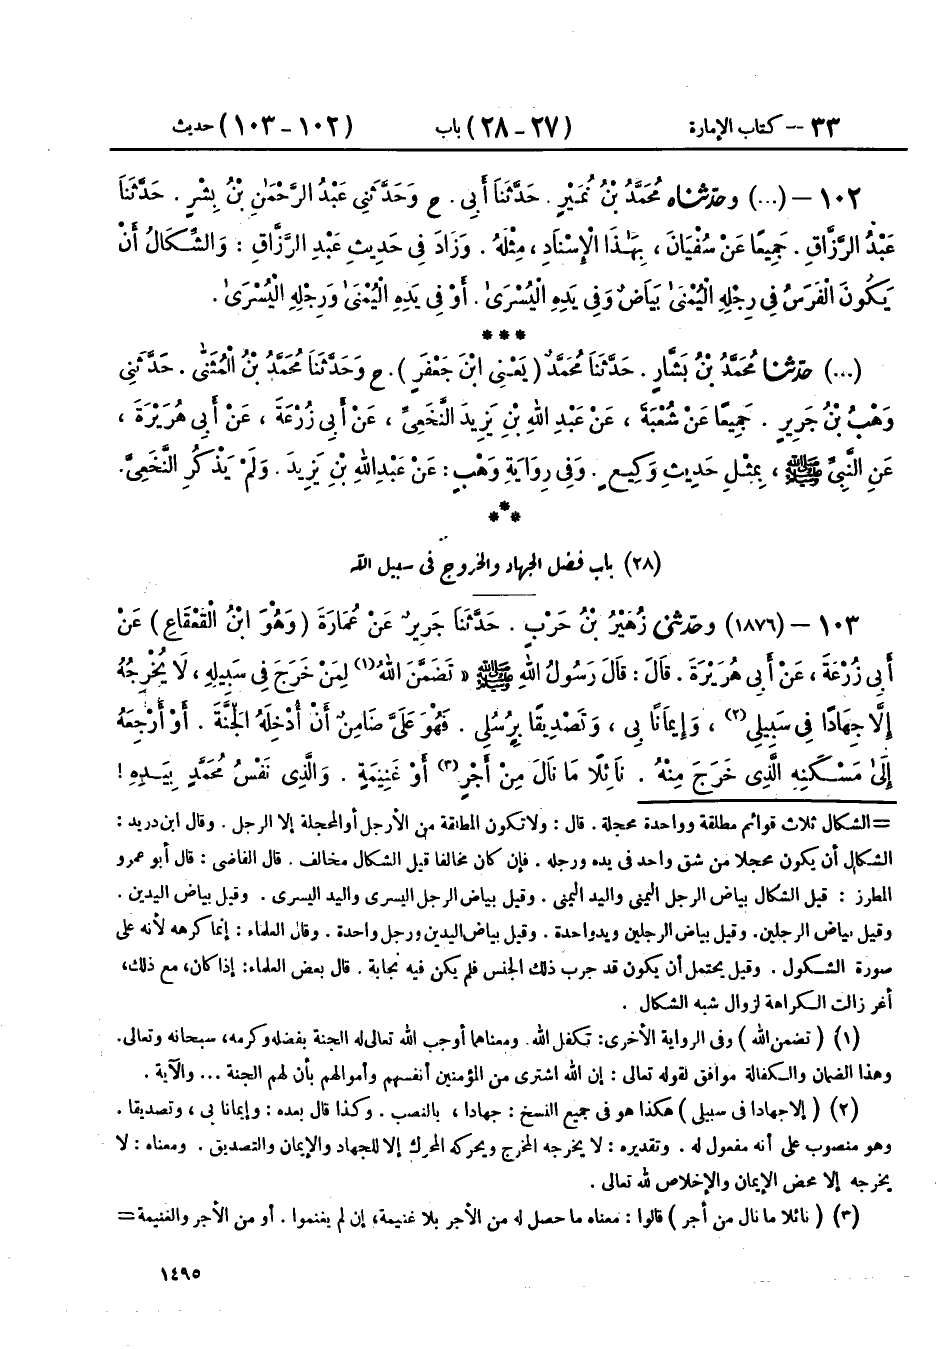 ٣٣ -- كتاب الإمارة (٢٧ - ٢٨) باب (١٠٢ - ١٠٣) حديث
١٠٢ – (...) وحَدَّثَنَاه مُحَمَّدُ بْنُ نُمَيْرٍ . حَدَّثَنَا أَبِي . ح وَحَدَّثَنِي عَبْدُ الرَّحْمَٰنِ بْنُ بِشْرٍ . حَدَّثَنَا
عَبْدُ الرَّزَّاقِ . جَمِيعًا عَنْ سُفْيَانَ ، بِهَٰذَا الْإِسْنَادِ ، مِثْلَهُ . وَزَادَ فِي حَدِيثِ عَبْدِ الرَّزَّاقِ : وَالشِّكَالُ أَنْ
يَكُونَ الْفَرَسُ فِي رِجْلِهِ الْيُمْنَىٰ بَيَاضٌ وَفِي يَدِهِ الْيُسْرَىٰ . أَوْ فِي يَدِهِ الْيُمْنَىٰ وَرِجْلِهِ الْيُسْرَىٰ .
***
(...) حَدَّثَنَا مُحَمَّدُ بْنُ بَشَّارٍ . حَدَّثَنَا مُحَمَّدٌ ( يَعْنِي ابْنَ جَعْفَرٍ ) . ح وَحَدَّثَنَا مُحَمَّدُ بْنُ الْمُثَنَّىٰ . حَدَّثَنِي
وَهْبُ بْنُ جَرِيرٍ . جَمِيعًا عَنْ شُعْبَةَ ، عَنْ عَبْدِ اللهِ بْنِ يَزِيدَ النَّخَعِيِّ ، عَنْ أَبِي زُرْعَةَ ، عَنْ أَبِي هُرَيْرَةَ ،
عَنِ النَّبِيِّ ﷺ ، بِمِثْلِ حَدِيثِ وَكِيعٍ . وَفِي رِوَايَةِ وَهْبٍ : عَنْ عَبْدِ اللهِ بْنِ يَزِيدَ . وَلَمْ يَذْكُرِ النَّخَعِيَّ .
***
(٢٨) باب فضل الجهاد والخروج فى سبيل الله
١٠٣ – (١٨٧٦) وحَدَّثَنِي زُهَيْرُ بْنُ حَرْبٍ . حَدَّثَنَا جَرِيرٌ عَنْ عُمَارَةَ ( وَهُوَ ابْنُ الْقَعْقَاعِ ) عَنْ
أَبِي زُرْعَةَ ، عَنْ أَبِي هُرَيْرَةَ . قَالَ : قَالَ رَسُولُ اللهِ ﷺ « تَضَمَّنَ اللهُ (١) لِمَنْ خَرَجَ فِي سَبِيلِهِ ، لَا يُخْرِجُهُ
إِلَّا جِهَادًا فِي سَبِيلِي (٢) ، وَإِيمَانًا بِي ، وَتَصْدِيقًا بِرُسُلِي . فَهُوَ عَلَيَّ ضَامِنٌ أَنْ أُدْخِلَهُ الْجَنَّةَ . أَوْ أَرْجِعَهُ
إِلَىٰ مَسْكَنِهِ الَّذِي خَرَجَ مِنْهُ . نَائِلًا مَا نَالَ مِنْ أَجْرٍ (٣) أَوْ غَنِيمَةٍ . وَالَّذِي نَفْسُ مُحَمَّدٍ بِيَدِهِ !
= الشكال ثلاث قوائم مطلقة وواحدة محجلة . قال : ولا تكون المطلقة من الأرجل أو المحجلة إلا الرجل . وقال ابن دريد :
الشكال أن يكون محجلا من شق واحد فى يده ورجله . فإن كان مخالفا قيل الشكال مخالف . قال القاضى : قال أبو عمرو
المطرز : قيل الشكال بياض الرجل اليمنى واليد اليمنى . وقيل بياض الرجل اليسرى واليد اليسرى . وقيل بياض اليدين .
وقيل بياض الرجلين. وقيل بياض الرجلين ويد واحدة . وقيل بياض اليدين ورجل واحدة . وقال العلماء : إنما كرهه لأنه على
صورة الشكول . وقيل يحتمل أن يكون قد جرب ذلك الجنس فلم يكن فيه نجابة . قال بعض العلماء: إذا كان، مع ذلك،
أغر زالت الكراهة لزوال شبه الشكال .
(١) ( تضمن الله ) وفى الرواية الأخرى : تكفل الله. ومعناهما أوجب الله تعالى له الجنة بفضله وكرمه، سبحانه وتعالى.
وهذا الضمان والكفالة موافق لقوله تعالى : إن الله اشترى من المؤمنين أنفسهم وأموالهم بأن لهم الجنة ... والآية .
(٢) ( إلا جهادا فى سبيلى ) هكذا هو فى جميع النسخ : جهادا ، بالنصب . وكذا قال بعده : وإيمانا بى ، وتصديقا .
وهو منصوب على أنه مفعول له . وتقديره : لا يخرجه المخرج ويحركه المحرك إلا للجهاد والإيمان والتصديق . ومعناه : لا
يخرجه إلا محض الإيمان والإخلاص لله تعالى .
(٣) ( نائلا ما نال من أجر ) قالوا : معناه ما حصل له من الأجر بلا غنيمة، إن لم يغنموا . أو من الأجر والغنيمة =
١٤٩٥